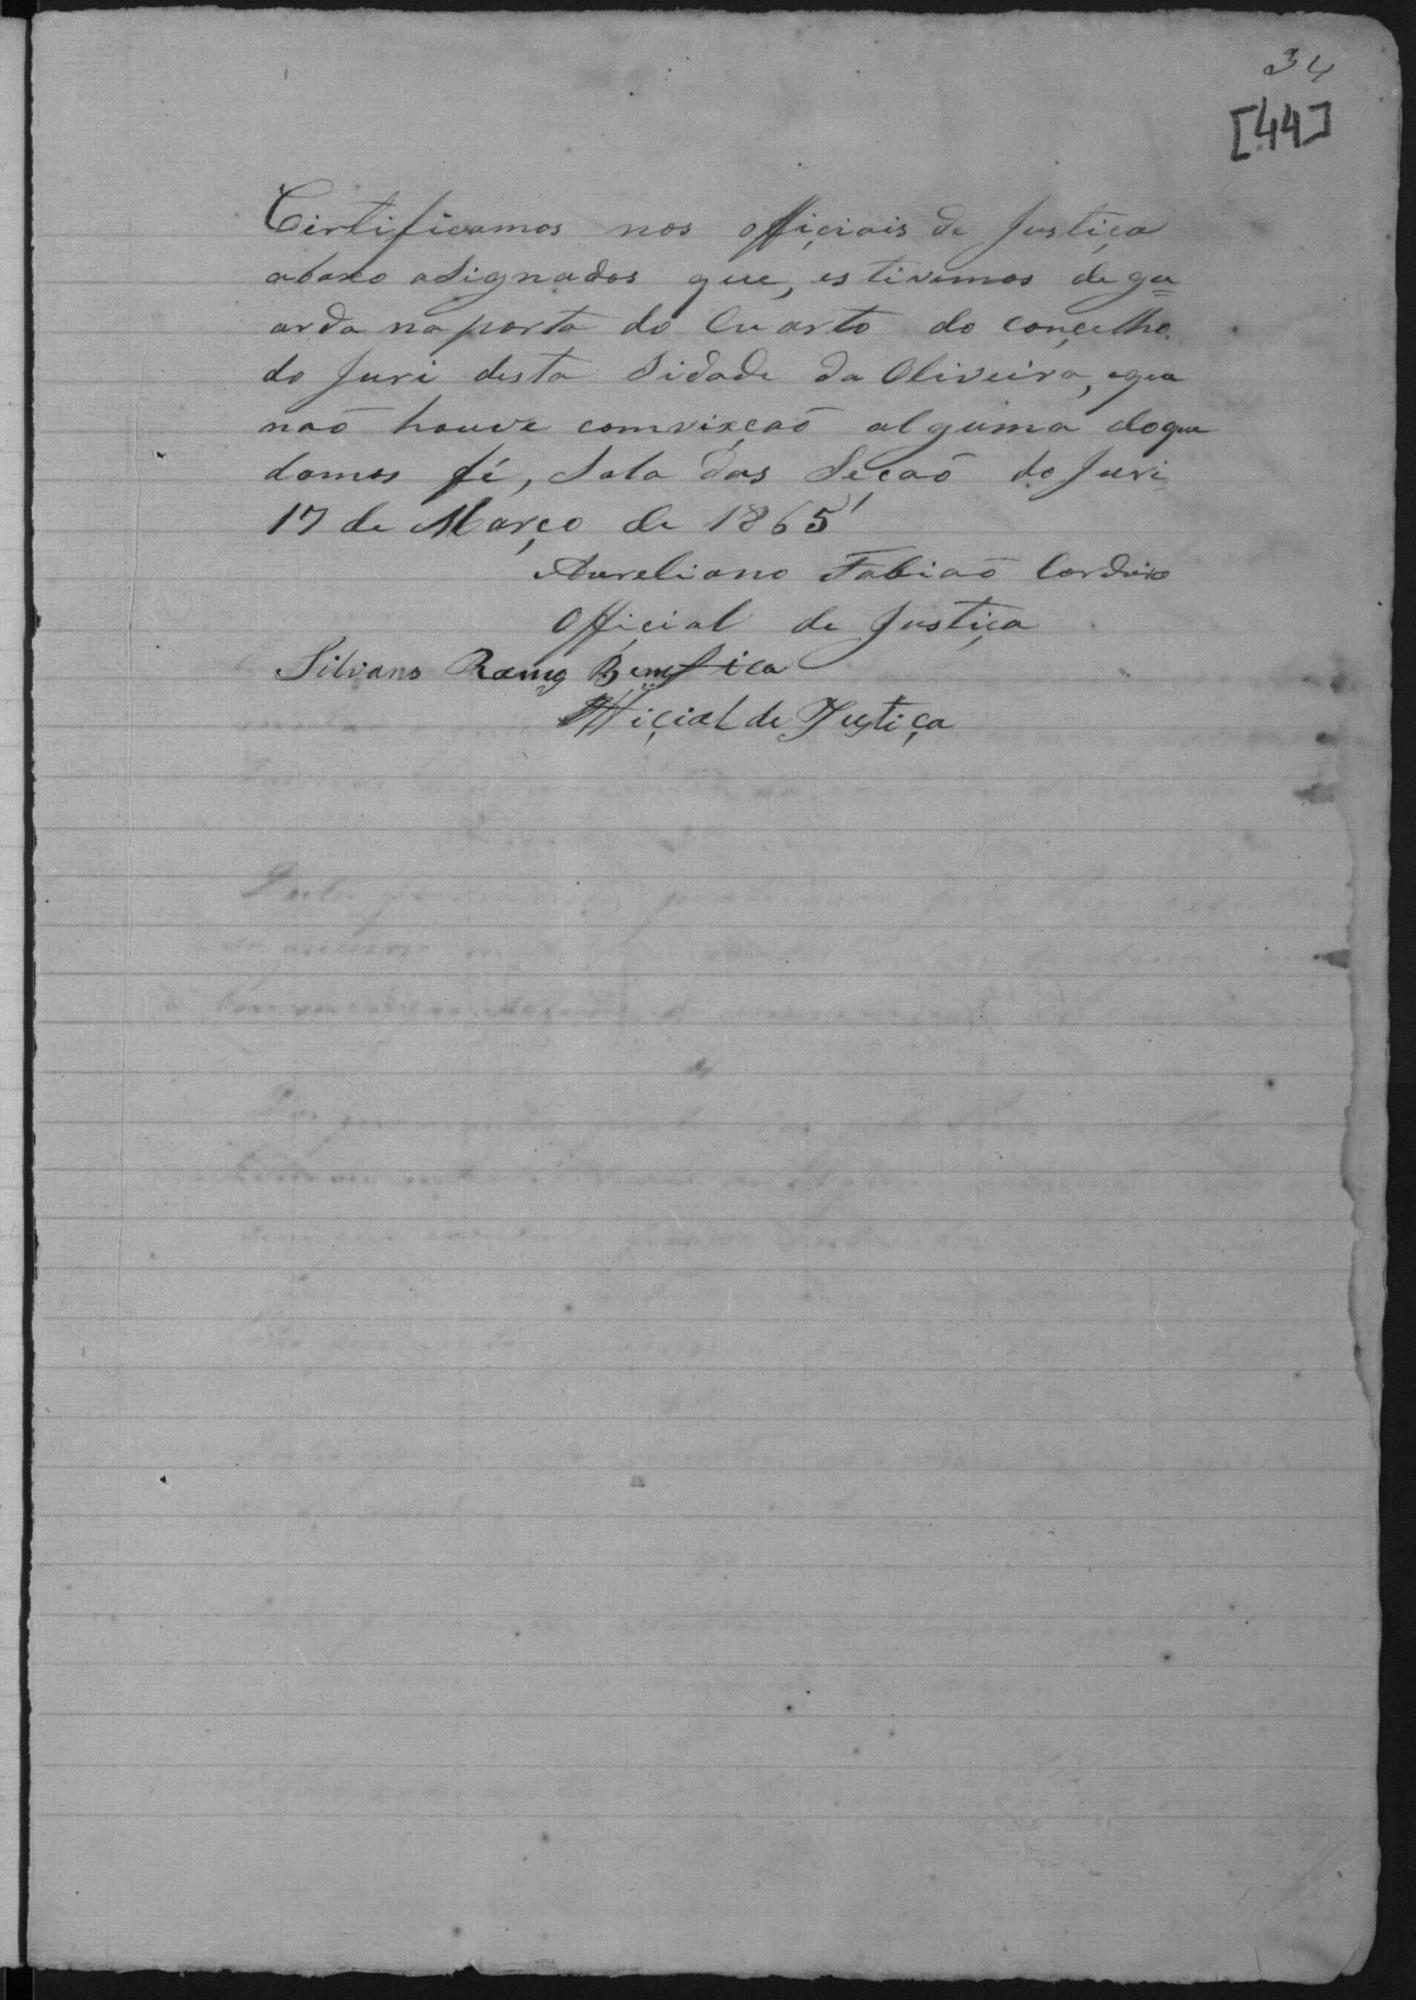 34
[44]
Certificamos nos officiais de Justiça
abaxo asignados que, estivemos de gu=
arda na porta do Cuarto do conçelho
do Juri desta Sidade da Oliveira, eque
naõ houve comvixçaõ alguma doque
damos fé, Sala das Seçaõ do Juri
17 de Março de 1865
Aureliano Fabiaõ Cordeiro
Official de Justiça
Silvano Ramos Bemfica
Officiçial de Justiça